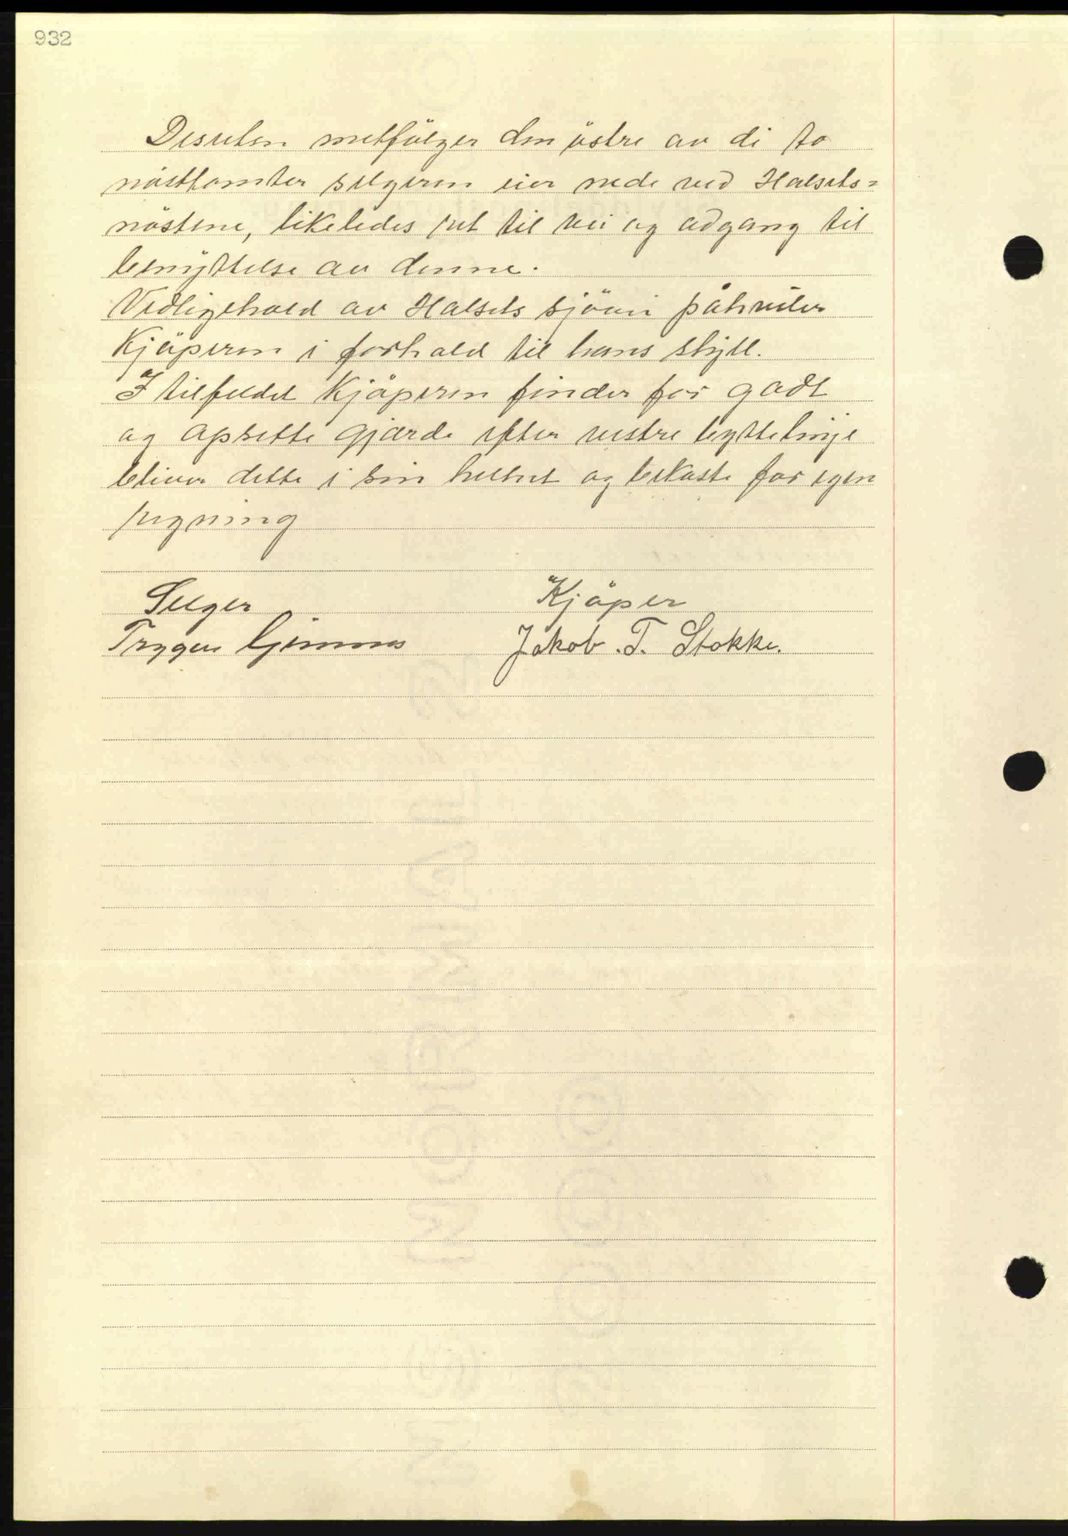 932
Desuten metfölger den östre av di to
nösttomter selgeren eier nede ved Halsets-
nöstene, likeledes ret til vei og adgang til
benyttelse av denne.
Vedligehold av Halsets sjövei påhviler
Kjöperen i forhold til hans skyll.
I tilfeldet Kjöperen finder for godt
og opsette gjærde efter vestre byttelinje
bliver dette i sin helhet og bekoste for egen
regning
Selger Kjöper
Trygve Jakob. T. Stokke.